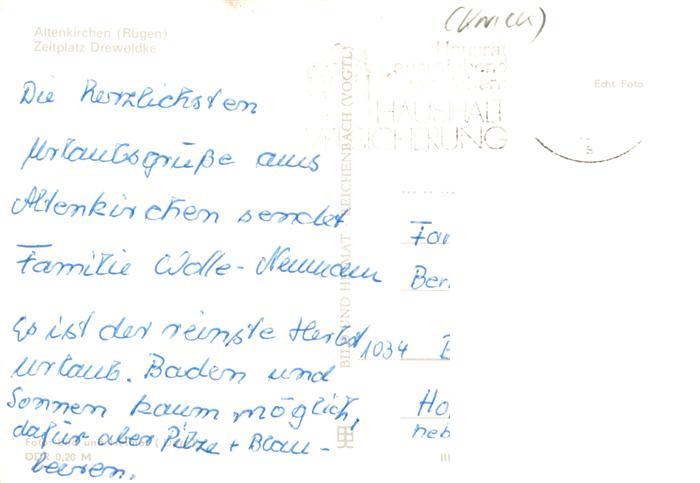 (Knick)
Altenkirchen (Rügen)
Zeltplatz Drewoldke
Die herzlichsten
Urlaubsgrüße aus
Altenkirchen sendet
Familie Wolle-Neumann
Es ist der reinste Herbst
urlaub. Baden und
Sonnen kaum möglich,
dafür aber Pilze + Blau-
beeren.
DDR 0,20 M
BILD UND HEIMAT REICHENBACH (VOGTL)
Hausrat
HAUSHALT
VERSICHERUNG
Echt Foto
Fa
Ber
1034 B
Ho
neb
III